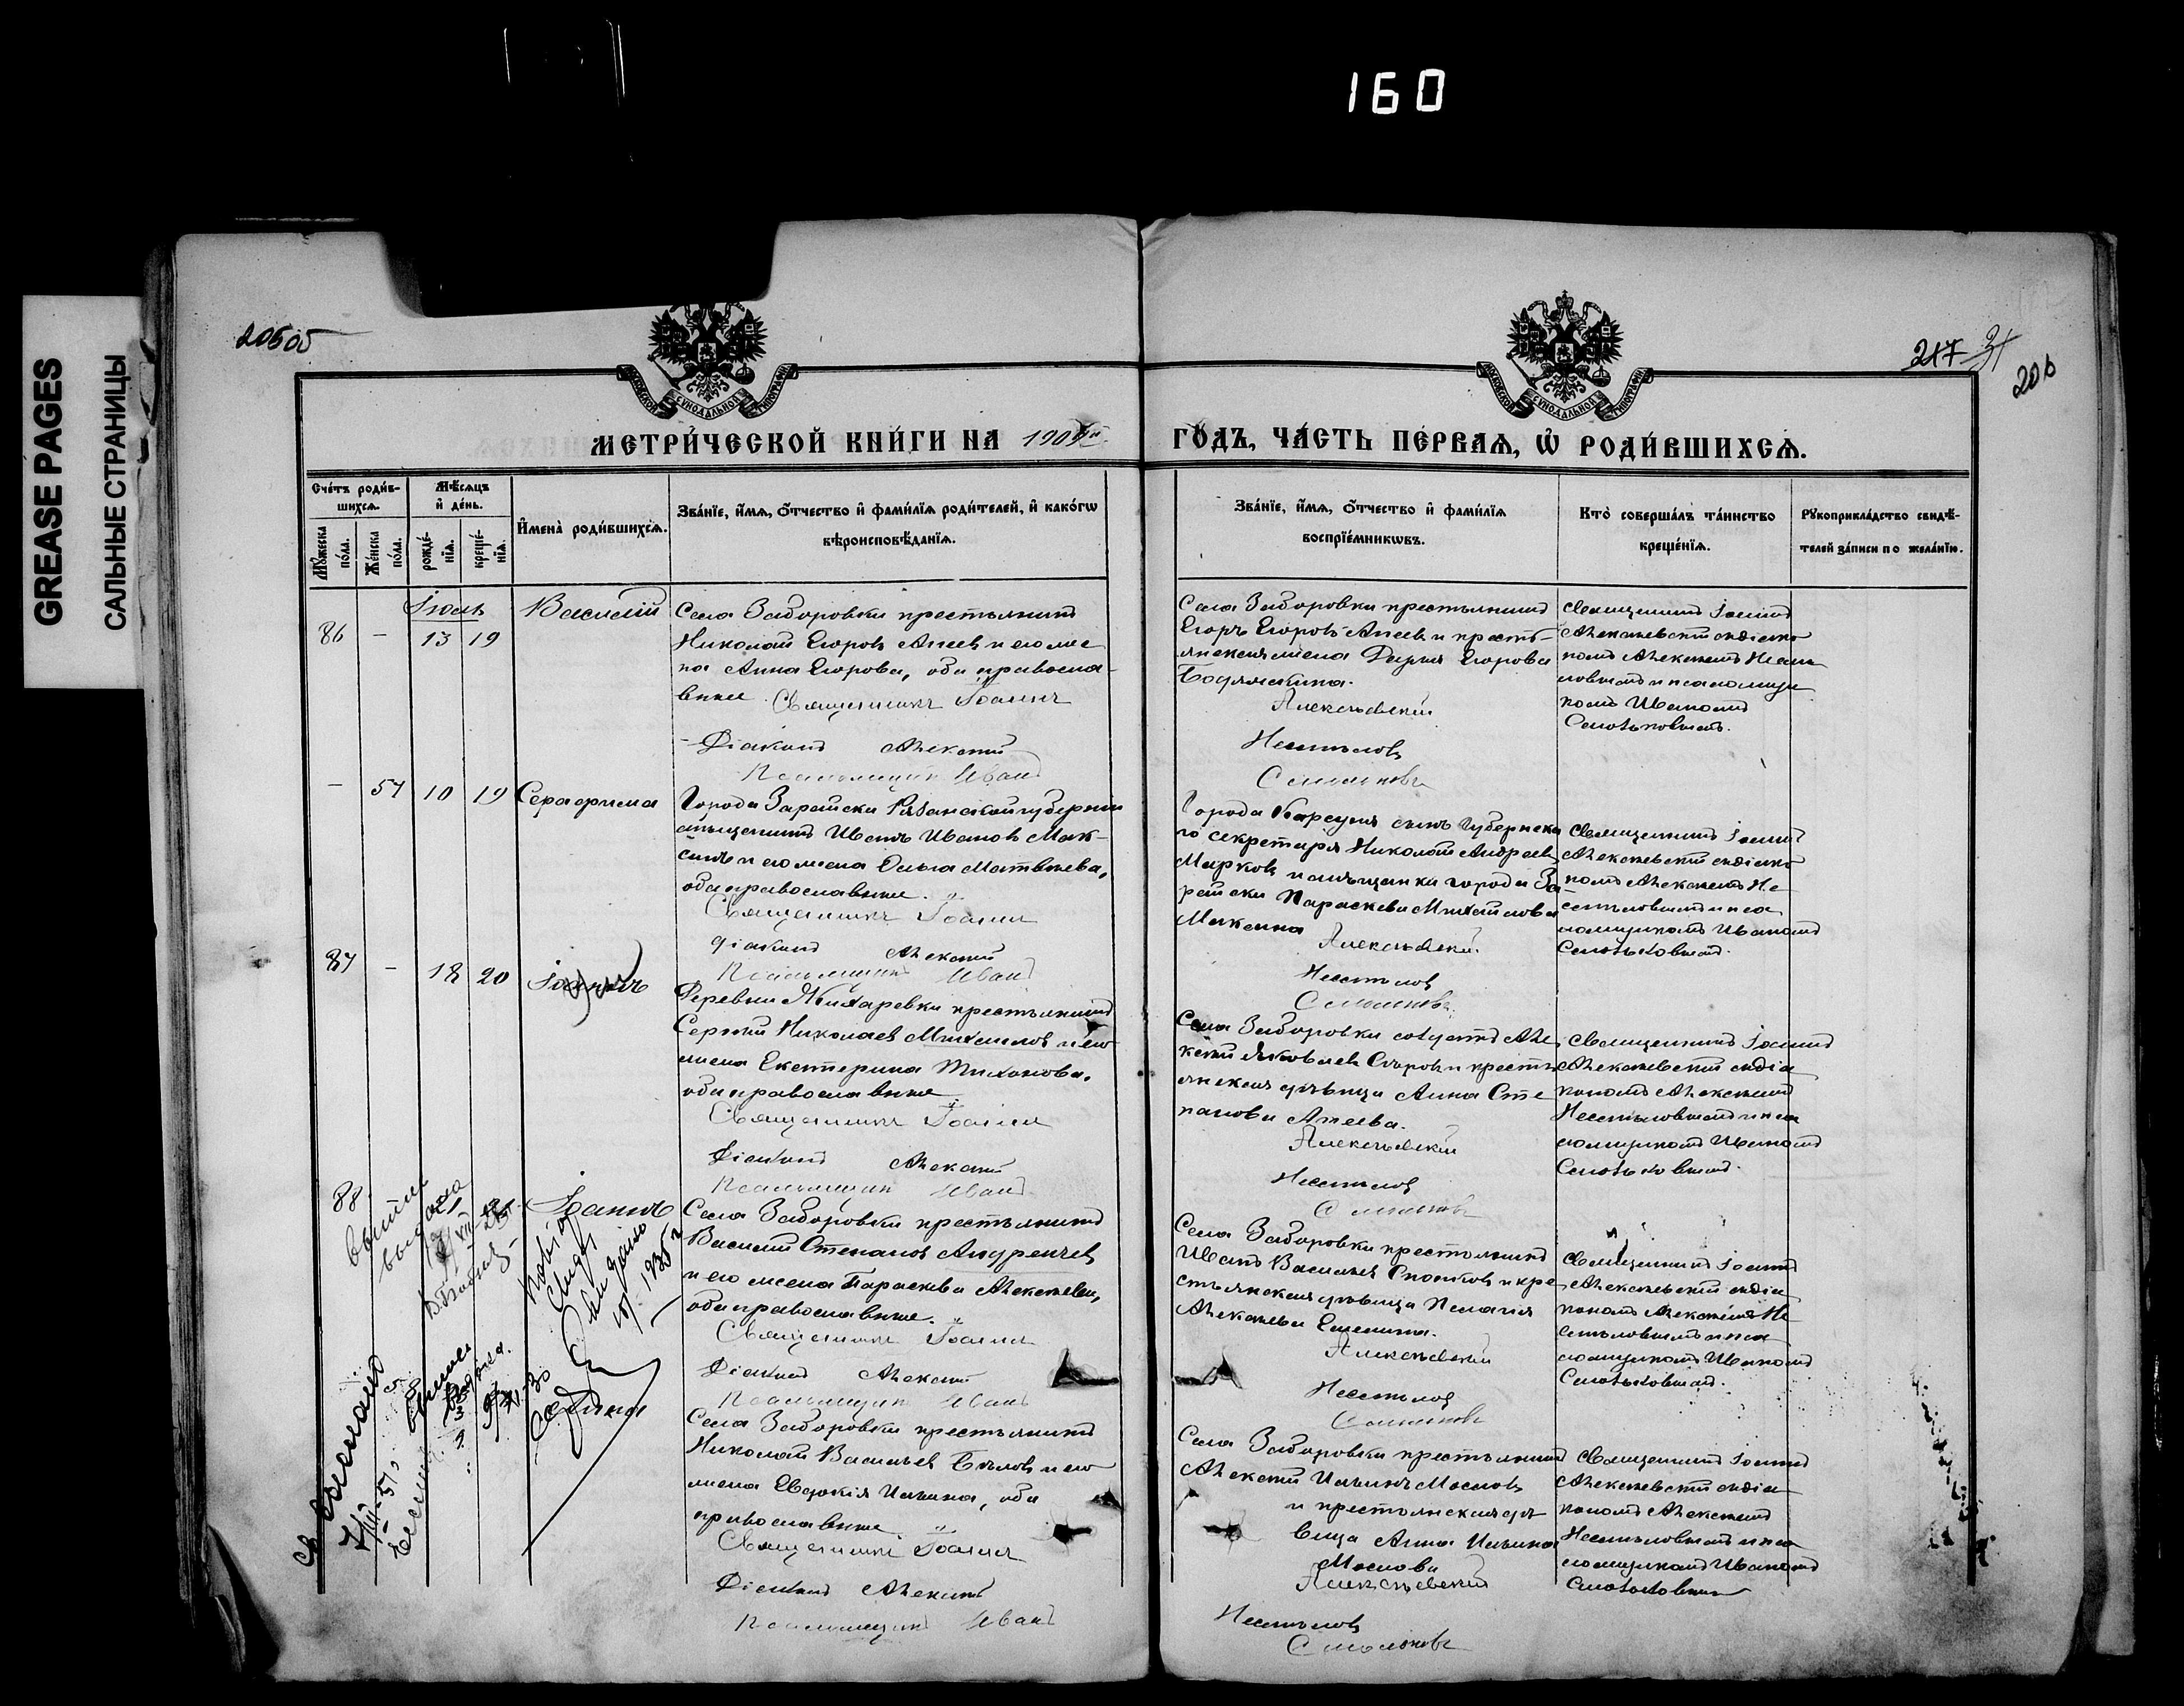 160
GREASE PAGES
САЛЬНЫЕ СТРАНИЦЫ
206об
217
206
МОСКОВСКОЙ СѴНОДАЛЬНОЙ ТИПОГРАФІИ
МОСКОВСКОЙ СѴНОДАЛЬНОЙ ТИПОГРАФІИ
МЕТРИ́ЧЕСКОЙ КНИ́ГИ НА 190
ГО́ДЪ, ЧА́СТЬ ПЕ́РВАѦ, Ѡ҆ РОДИ́ВШИХСѦ.
Сче́тъ роди́в-
шихсѧ.
Мꙋ́жеска по́ла.
Же́нска по́ла.
Мѣ́сѧцъ
и҆ де́нь.
рожде́-
нїѧ.
креще́-
нїѧ.
И҆мена̀ роди́вшихсѧ.
Зва́нїе, и҆́мѧ, ѻ҆́тчество и҆ фами́лїѧ роди́телей, и҆ како́гѡ
вѣроисповѣ́данїѧ.
Зва́нїе, и҆́мѧ, ѻ҆́тчество и҆ фами́лїѧ
воспрїе́мникѡвъ.
Кто̀ соверша́лъ та́инство
креще́нїѧ.
Рꙋкоприкла́дство свидѣ́-
телей за́писи по жела́нїю.
Іюль
86 - 13 19 Василій
Села Заборовки крестьянинъ
Николай Егоровъ Агеевъ и его же-
на Анна Егорова, оба православ-
ные. Священникъ Іоаннъ
Діаконъ Алексій
Псаломщикъ Иванъ
Села Заборовки крестьянинъ
Егоръ Егоровъ Агеевъ и кресть-
янская жена Дарья Егорова
Бодряжкина.
Алексѣевскій
Несмѣловъ
Смольковъ
Священникъ Іоаннъ
Алексѣевскій съ діако-
номъ Алексіемъ Несмѣ-
ловымъ и псаломщи-
комъ Иваномъ
Смольковымъ.
- 57 10 19 Серафима
Города Зарайска Рязанской губерніи
мѣщанинъ Иванъ Ивановъ Мак-
синъ и его жена Ольга Матвѣева,
оба православные.
Священникъ Іоаннъ
Діаконъ Алексій
Псаломщикъ Иванъ
Города Карсуня сынъ губернска
го секретаря Николай Андреевъ
Марковъ и мѣщанка города За-
райска Параскева Михайлова
Максина
Алексѣевскій
Несмѣловъ
Смольковъ
Священникъ Іоаннъ
Алексѣевскій съ діако-
номъ Алексіемъ Не-
смѣловымъ и пса-
ломщикомъ Иваномъ
Смольковымъ.
87 - 18 20 Іоаннъ
Деревни Жихаревки крестьянинъ
Сергій Николаевъ Михайловъ и его
жена Екатерина Тихонова,
оба православные.
Священникъ Іоаннъ
Діаконъ Алексій
Псаломщикъ Иванъ
Села Заборовки солдатъ Але-
ксій Яковлевъ Егоровъ и кресть-
янская дѣвица Анна Сте-
панова Агеева.
Алексѣевскій
Несмѣловъ
Смольковъ
Священникъ Іоаннъ
Алексѣевскій съ діа-
кономъ Алексіемъ
Несмѣловымъ и пса-
ломщикомъ Иваномъ
Смольковымъ.
88 Іоаннъ
Села Заборовки крестьянинъ
Василій Степановъ Андреичевъ
и его жена Параскева Алексѣева,
оба православные.
Священникъ Іоаннъ
Діаконъ Алексій
Псаломщикъ Иванъ
Села Заборовки крестьянинъ
Иванъ Васильевъ и кре-
стьянская дѣвица Пелагія
Алексѣева Еменина.
Алексѣевскій
Несмѣловъ
Смольковъ
Священникъ Іоаннъ
Алексѣевскій съ діа-
кономъ Алексіемъ Не-
смѣловымъ и пса-
ломщикомъ Иваномъ
Смольковымъ.
Села Заборовки крестьянинъ
Николай Васильевъ Бѣловъ и его
жена Евдокія Ильина, оба
православные.
Священникъ Іоаннъ
Діаконъ Алексій
Псаломщикъ Иванъ
Села Заборовки крестьянинъ
Алексій Ильинъ Масловъ
и крестьянская дѣ-
вица Анна Ильина
Маслова
Алексѣевскій
Несмѣловъ
Смольковъ
Священникъ Іоаннъ
Алексѣевскій съ діа-
кономъ Алексіемъ
Несмѣловымъ и пса-
ломщикомъ Иваномъ
Смольковымъ